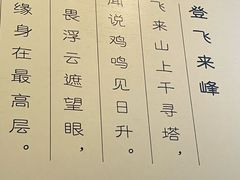 登飞来峰
飞来山上千寻塔，
闻说鸡鸣见日升。
畏浮云遮望眼，
缘身在最高层。